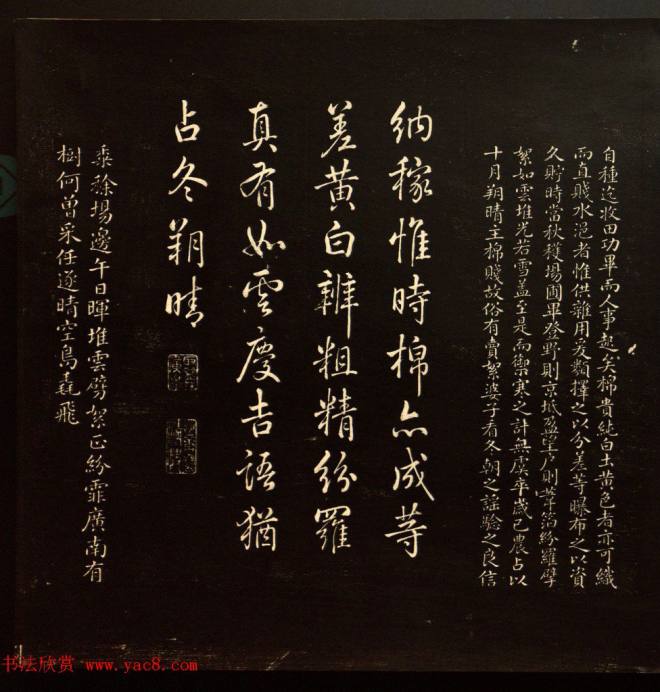 自種迄收田功畢而人事起矣棉貴純白土黃色者亦可織
而直賤水浥者惟供雜用爰類擇之以分差等曝布之以資
久貯時當秋穫場圃畢登野則京坻盈望戶則葦箔紛羅擘
絮如雲堆光若雪蓋至是而禦寒之計無虞卒歲已農占以
十月朔晴主棉賤故俗有賣絮婆子看冬朝之謠驗之良信
納稼惟時棉亦成䓁
差黃白辨粗精紛羅
真有如雲慶吉語猶
占冬朔晴
乘穄場邊午日暉堆雲劈絮正紛霏廣南有
樹何曾采任逐晴空鳥毳飛
书法欣赏 www.yac8.com